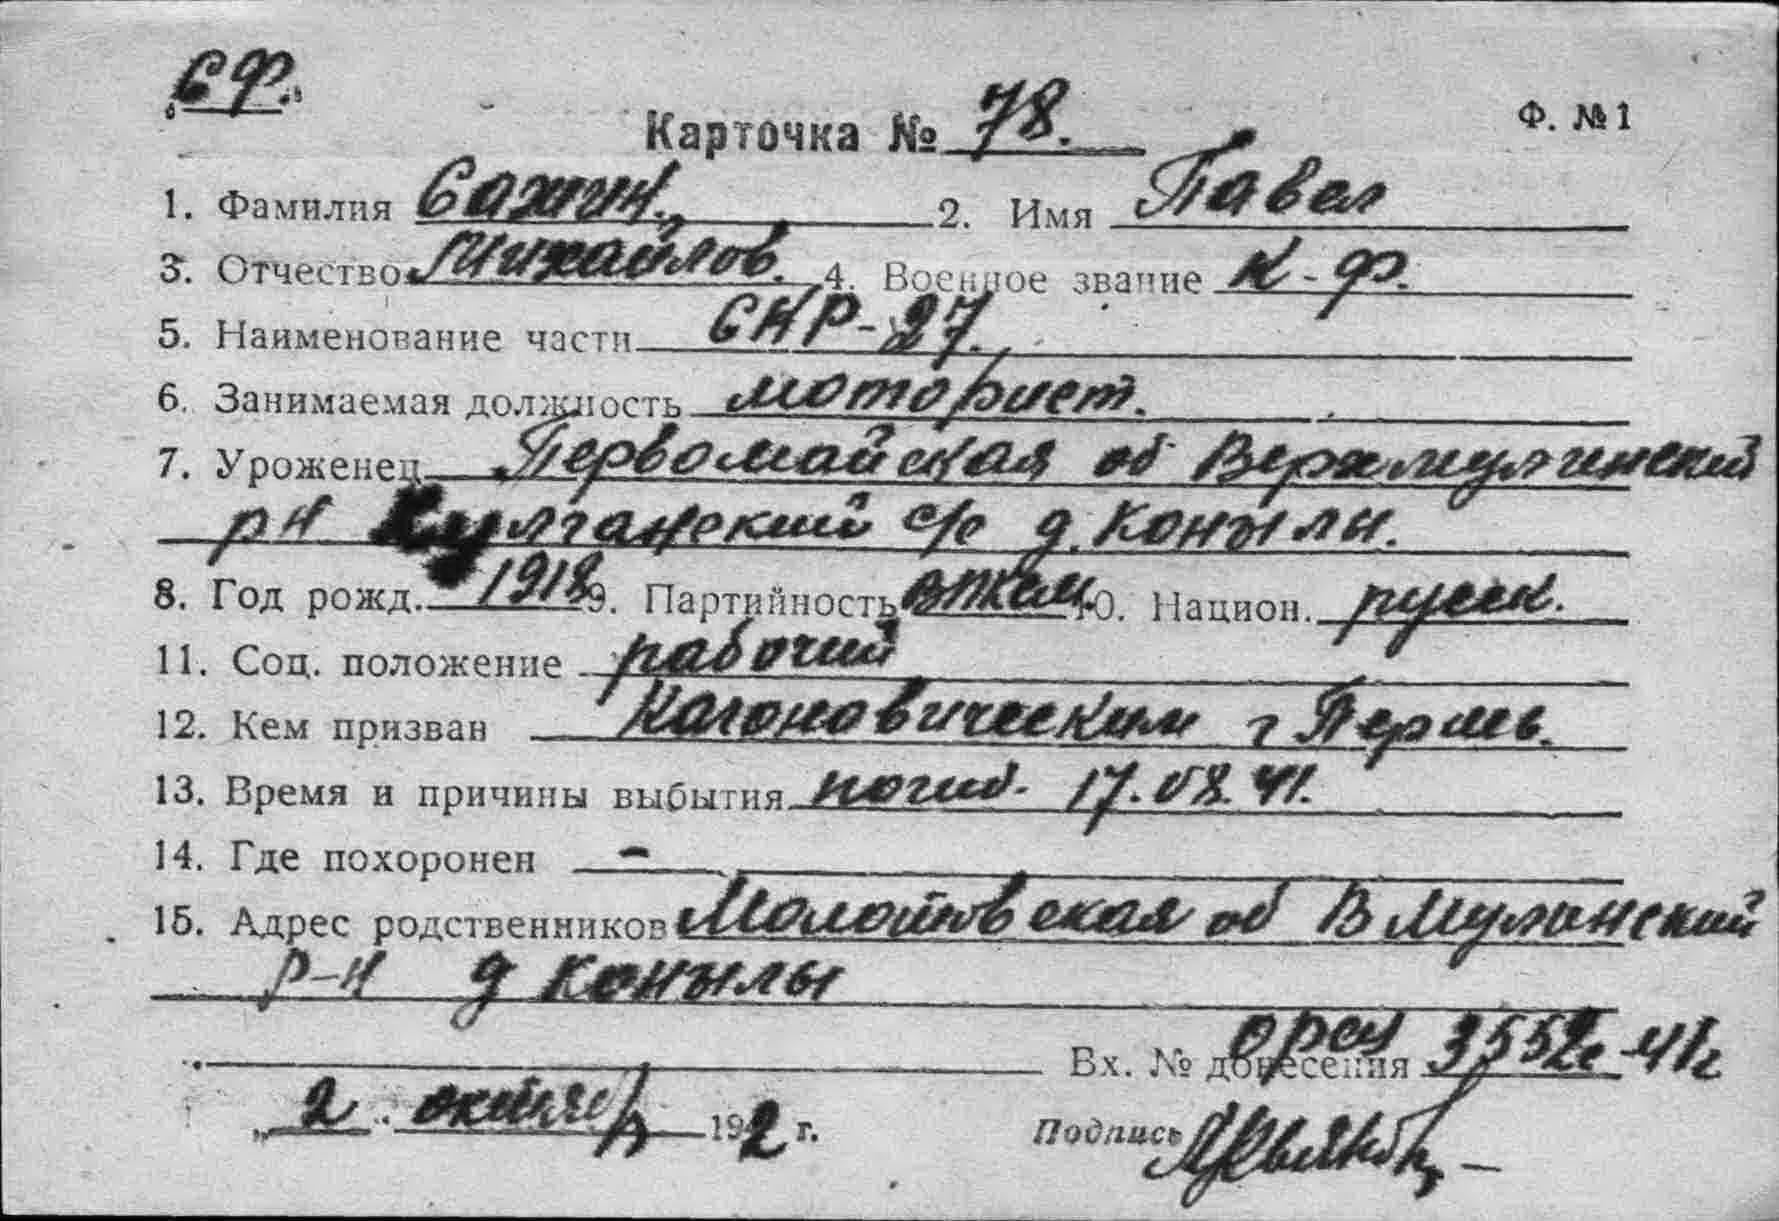 „С Ф.“
Карточка № 78.
Ф. № 1
1. Фамилия Сажин. 2. Имя Павел
3. Отчество Михайлов. 4. Военное звание К-Ф.
5. Наименование части СКР-27.
6. Занимаемая должность моторист.
7. Уроженец Первомайская об Верхмулинский
рн Култанский с/с д. Конылы.
8. Год рожд. 1918 9. Партийность ВЛКСМ 10. Национ. русск.
11. Соц. положение рабочий
12. Кем призван Кагоновическим г Пермь.
13. Время и причины выбытия погиб. 17.08.41.
14. Где похоронен -
15. Адрес родственников Молотовская об В Мулинский
р-н д Конылы
Вх. № донесения 3552с-41г
„2“ октября 192 г.
Подпись